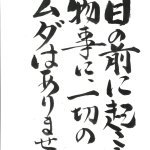 目の前に起こる
物事に一切の
ムダはありませ